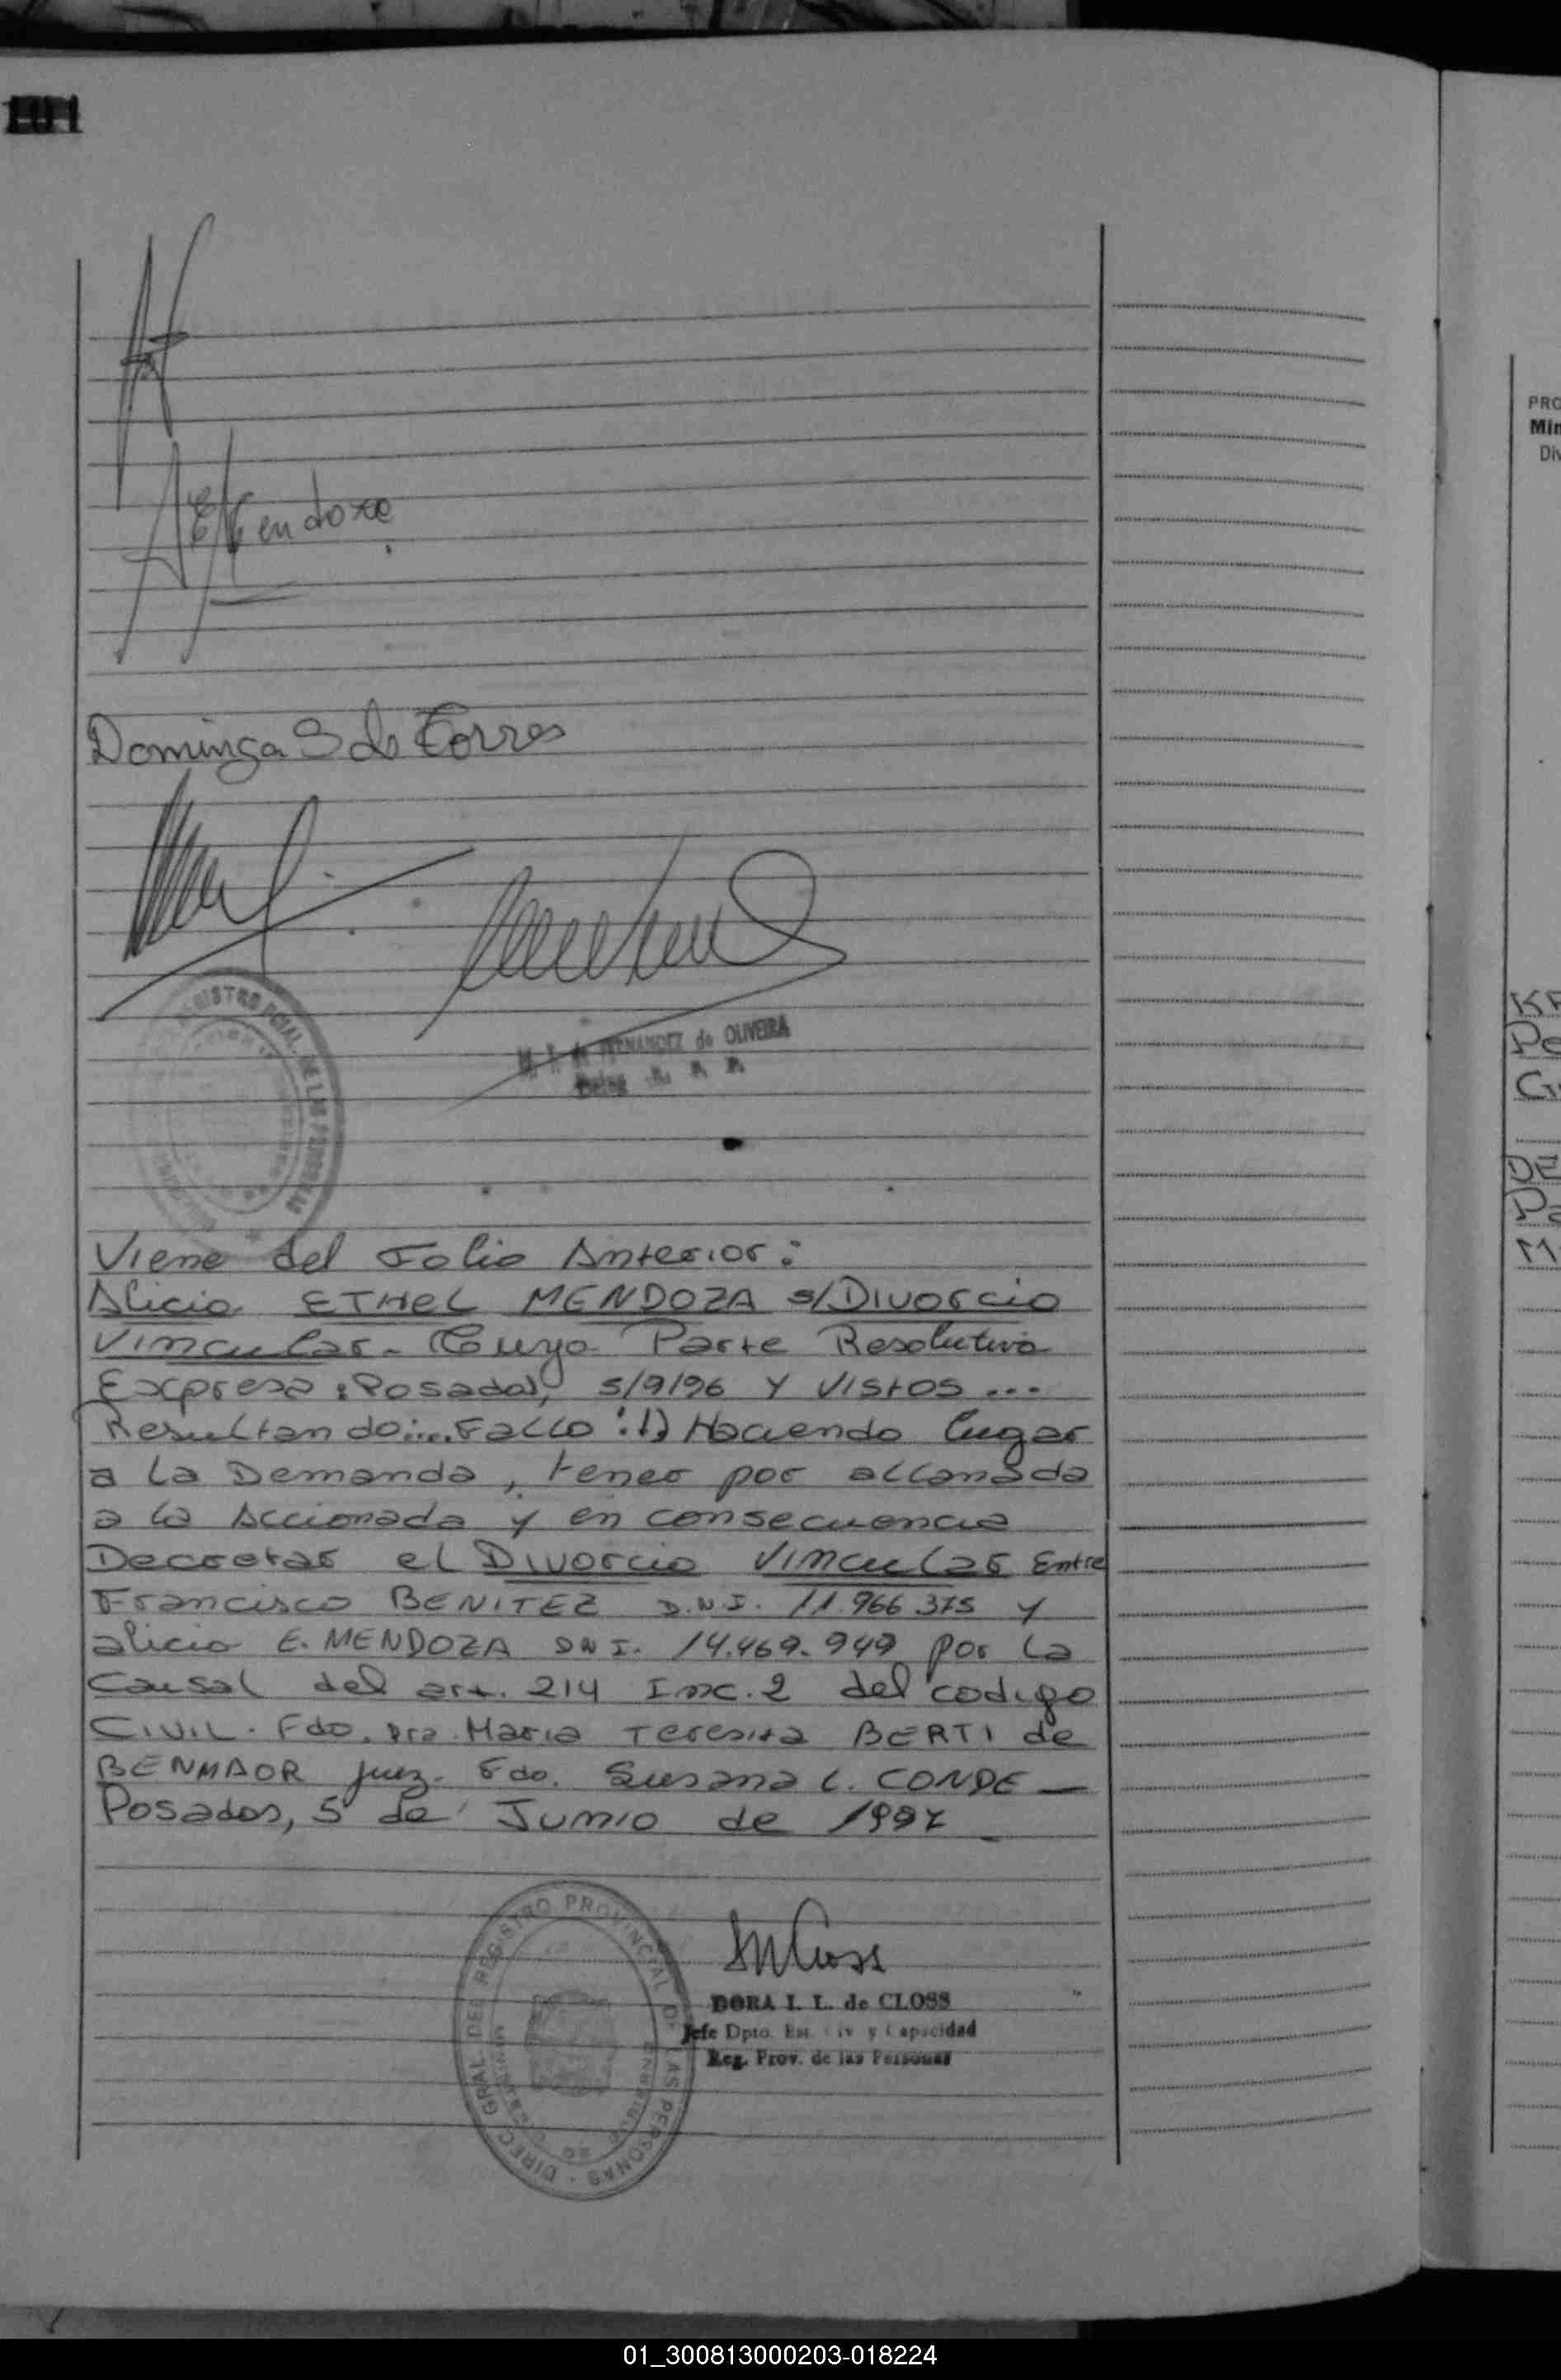 101
AEMendoza
Dominga S de Torres
REGISTRO PCIAL. DE LAS PERSONAS
FERNANDEZ de OLIVEIRA
Viene del Folio Anterior:
Alicia ETHEL MENDOZA s/Divorcio
Vincular- Cuya Parte Resolutiva
Expresa: Posadas, 5/9/96 Y VISTOS ...
Resultando:...Fallo: 1) Haciendo lugar
a La Demanda, tener por allanada
a la Accionada y en consecuencia
Decretar el Divorcio Vincular Entre
Francisco BENITEZ D.N.I. 11.966.375 y
alicia E. MENDOZA DNI. 14.469.949 por la
Causal del art. 214 Inc. 2 del codigo
CIVIL. Fdo. Dra. Maria Teresita BERTI de
BENMAOR juez. Fdo. Susana L. CONDE —
Posadas, 5 de Junio de 1997
DIREC. GRAL DEL REGISTRO PROVINCIAL DE LAS PERSONAS
DORA I. L. de CLOSS
Jefe Dpto. Est. Civ y Capacidad
Reg. Prov. de las Personas
PRO
Min
Div
Po
DE
01_300813000203-018224